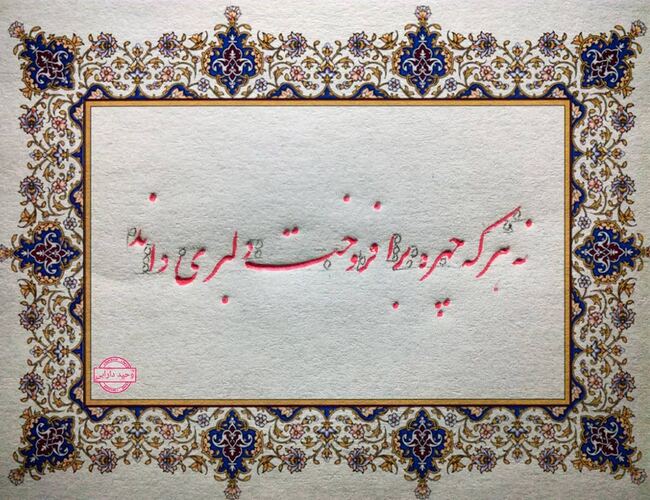 نه هرکه چهره برافروخت دلبری داند
وحید دارابی